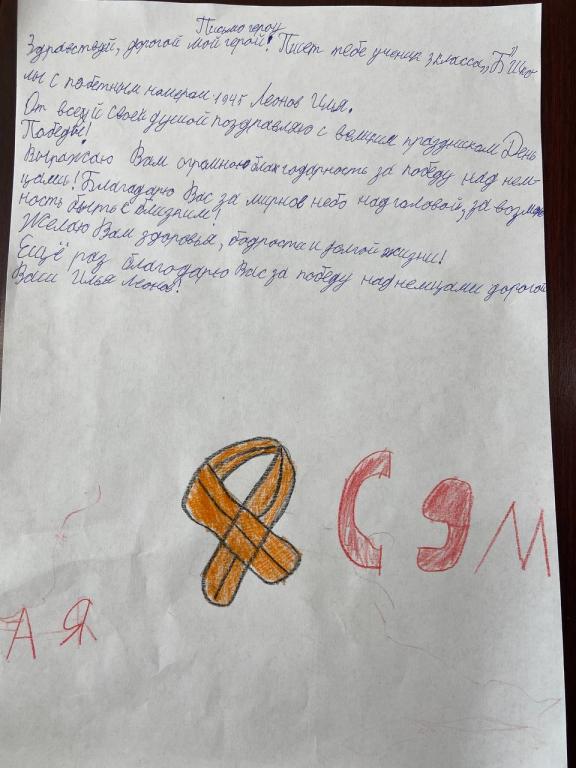 Письмо герою
Здравствуй, дорогой мой герой! Пишет тебе ученик 3 класса „Б" Шко-
лы с победным номером 1945 Леонов Илья.
От всей своей душой поздравляю с великим праздником День
Победы!
Выражаю Вам огромною благодарность за победу над нем-
цами! Благодарю Вас за мирное небо над головой, за возмож
ность быть с близким!
Желаю Вам здоровья, бодрости и долгой жизни!
Ещё раз благодарю Вас за победу над немцами дорогой
Ваш Илья Леонов!
С 9 М
А Я